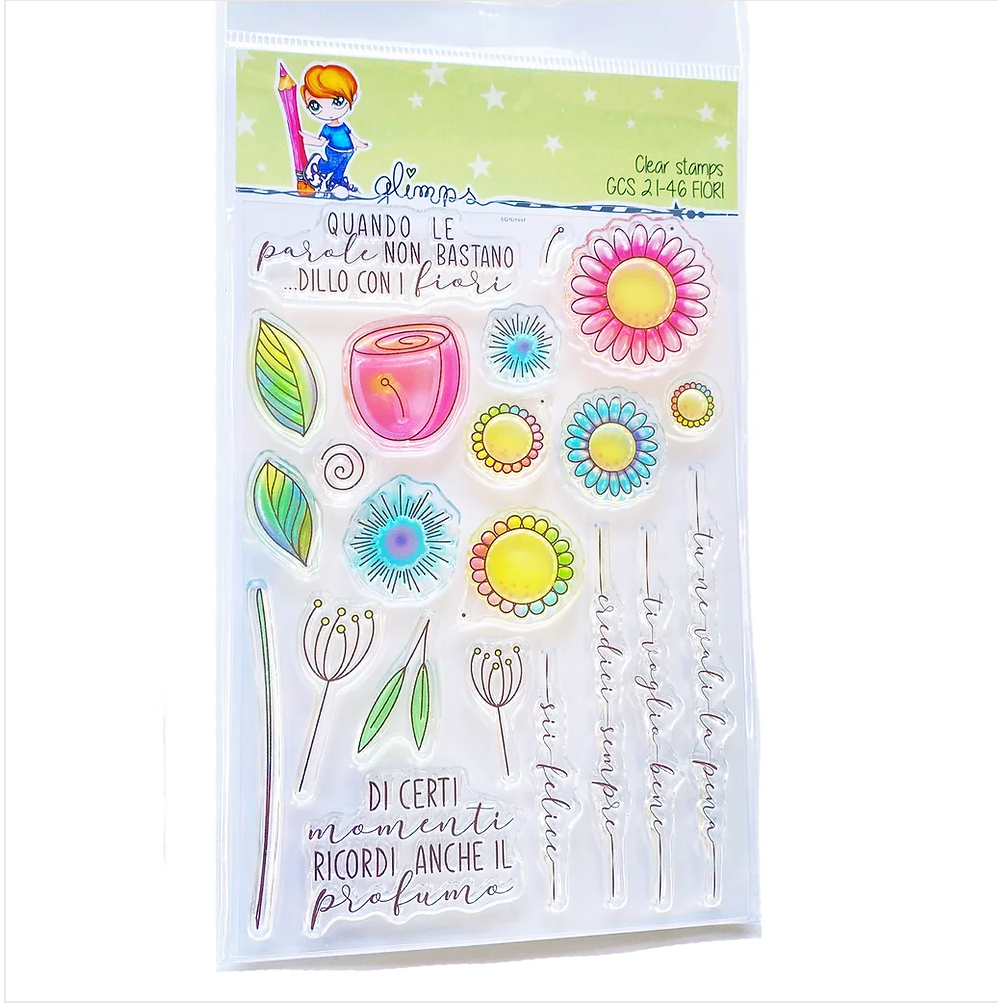 glimps
Clear stamps
GCS 21-46 FIORI
QUANDO LE
parole NON BASTANO
...DILLO CON I fiori
sii felice
credici sempre
ti voglio bene
tu ne vali la pena
DI CERTI
momenti
RICORDI ANCHE IL
profumo